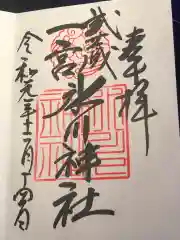 奉拝
武蔵
一宮
氷川神社
令和元年十二月十四日